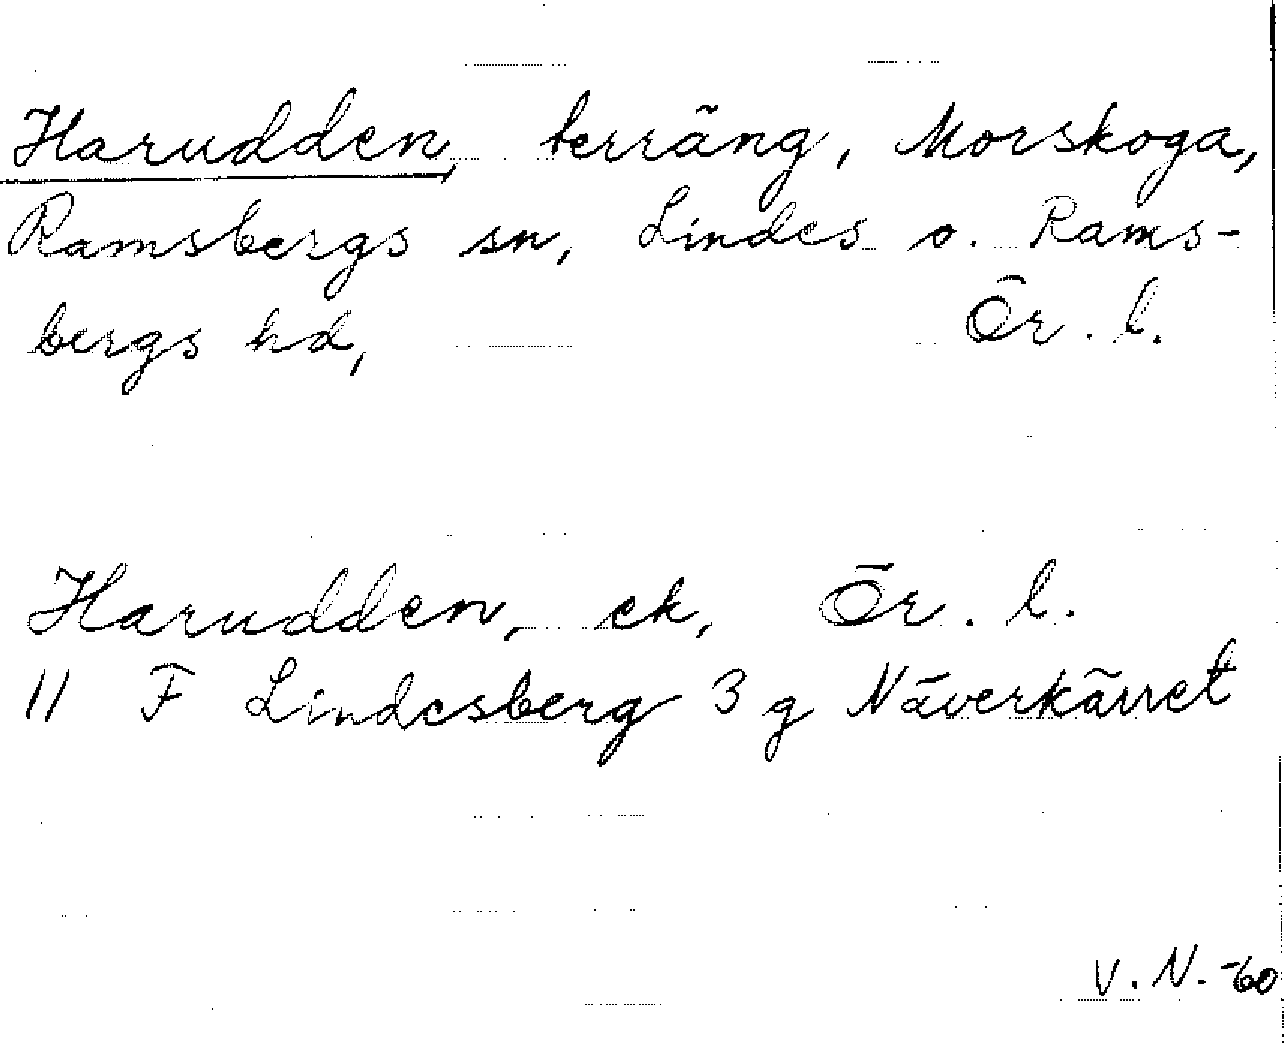 Harudden, terräng, Morskoga,
Ramsbergs sn, Lindes o. Rams-
bergs hd, Ör. l.
Harudden, ek, Ör. l.
11 F Lindesberg 3 g Näverkärret
V. N. -60